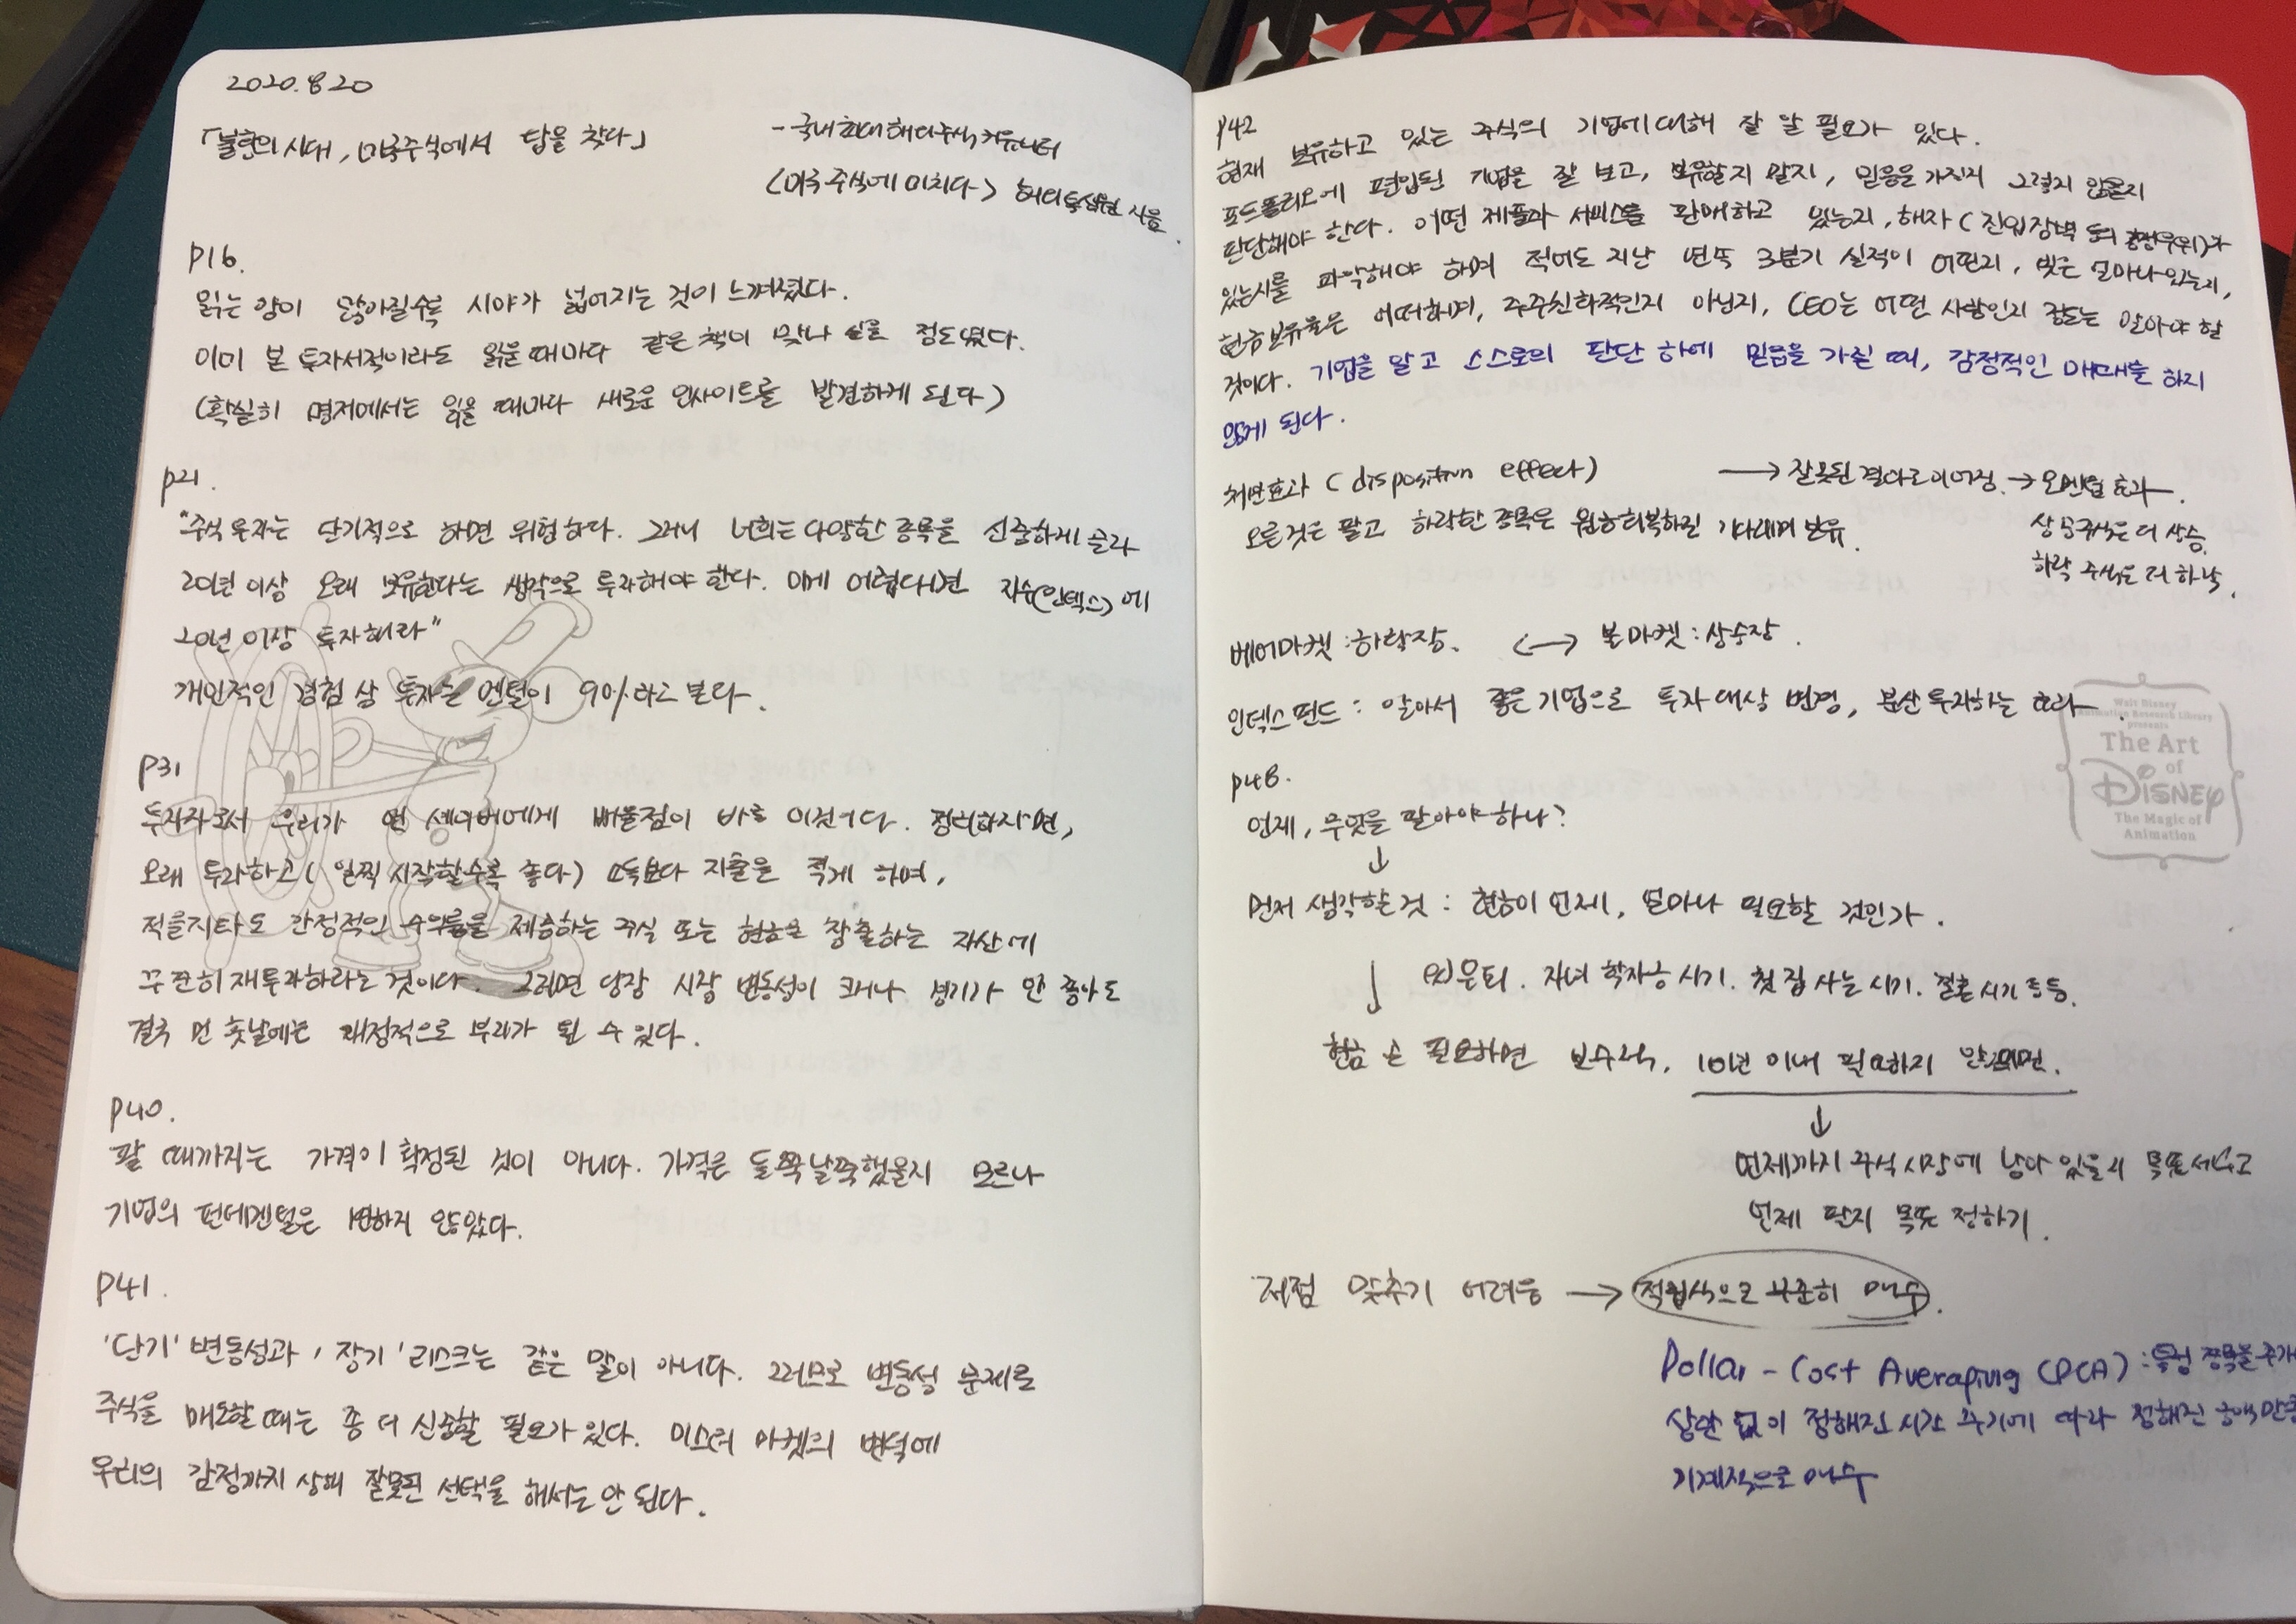 2020.8.20
「불황의 시대, 미국주식에서 답을 찾다」
- 국내 최대 해외주식 커뮤니티
<미국 주식에 미치다>
p16.
읽는 양이 많아질수록 시야가 넓어지는 것이 느껴졌다.
이미 본 투자서적이라도 읽을 때마다 같은 책이 맞나 싶을 정도였다.
(확실히 명저에서는 읽을 때마다 새로운 인사이트를 발견하게 된다)
p21.
"주식 투자는 단기적으로 하면 위험하다. 그러니 너희는 다양한 종목을 신중하게 골라
20년 이상 오래 보유한다는 생각으로 투자해야 한다. 이게 어렵다면 지수(인덱스)에
20년 이상 투자해라"
개인적인 경험 상 투자는 멘털이 9할이라고 본다.
p31
투자자로서 우리가 먼 세이버에게 배울점이 바로 이것이다. 정리하자면,
오래 투자하고(일찍 시작할수록 좋다) 소득보다 지출을 적게 하며,
적을지라도 안정적인 수익률을 제공하는 주식 또는 현금을 창출하는 자산에
꾸준히 재투자하라는 것이다. 그러면 당장 시장 변동성이 크거나 경기가 안 좋아도
결국 먼 훗날에는 재정적으로 부자가 될 수 있다.
p40.
팔 때까지는 가격이 확정된 것이 아니다. 가격은 들쭉날쭉했을지 모르나
기업의 펀데멘털은 변하지 않았다.
p41.
'단기' 변동성과 '장기' 리스크는 같은 말이 아니다. 그러므로 변동성 문제로
주식을 매도할 때는 좀 더 신중할 필요가 있다. 미스터 마켓의 변덕에
우리의 감정까지 상해 잘못된 선택을 해서는 안 된다.
p42
현재 보유하고 있는 주식의 기업에 대해 잘 알 필요가 있다.
포트폴리오에 편입된 기업을 잘 보고, 보유할지 말지, 믿음을 가질지 그렇지 않을지
판단해야 한다. 어떤 제품과 서비스를 판매하고 있는지, 해자(진입장벽 등의 경쟁우위)가
있는지를 파악해야 하며 적어도 지난 번 3분기 실적이 어떤지, 빚은 얼마나 있는지,
현금보유율은 어떠하며, 주주친화적인지 아닌지, CEO는 어떤 사람인지 정도는 알아야 할
것이다. 기업을 알고 스스로의 판단 하에 믿음을 가질 때, 감정적인 매매를 하지
않게 된다.
처분효과 (disposition effect) → 잘못된 결과로 이어짐. → 모멘텀 효과.
오른것은 팔고 하락한 종목은 원금회복하길 기다리며 보유.
상승주식은 더 상승.
하락 주식은 더 하락.
베어마켓 : 하락장. ↔ 불마켓 : 상승장.
인덱스 펀드 : 알아서 좋은 기업으로 투자 대상 변경, 분산 투자하는 효과.
Walt Disney
Animation Research Library
presents
The Art
of
DISNEY
The Magic of
Animation
p48.
언제, 무엇을 팔아야 하나?
↓
먼저 생각할 것 : 현금이 언제, 얼마나 필요할 것인가.
↓ ex)은퇴. 자녀 학자금 시기. 첫 집 사는 시기. 결혼 시기 등등.
현금 곧 필요하면 보수적, 10년 이내 필요하지 않다면.
↓
언제까지 주식 시장에 남아 있을지 목표 세우고
언제 팔지 목표 정하기.
저점 맞추기 어려움 → 적립식으로 꾸준히 매수.
Dollar - Cost Averaging (DCA) : 특정 종목을 주가
상관 없이 정해진 시간 주기에 따라 정해진 금액만큼
기계적으로 매수